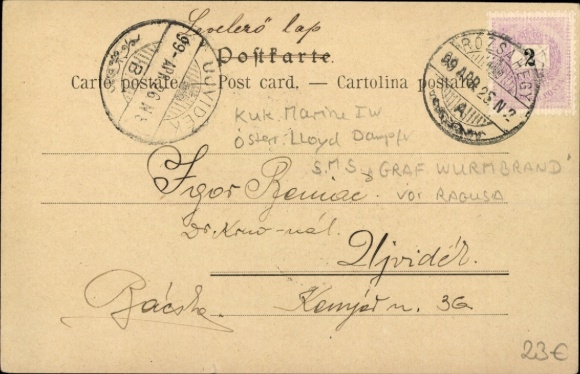 Levelező lap
Postkarte.
Carte postale. — Post card. — Cartolina postale
ÚJVIDÉK
99 APR 26 N 3
B
RÓZSAHEGY
99 APR 25 N 2
A
2
K u K. Marine IW
Österr. Lloyd Dampfr
S.M.S „GRAF WURMBRAND"
vor RAGUSA
Igor
Dr Krno-nál.
Ujvidék.
Bácska
36
23€